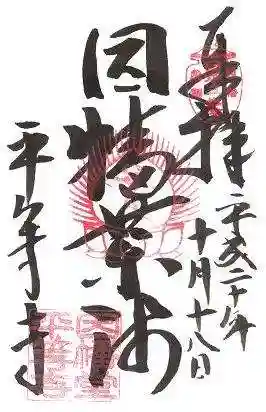 奉拝
平成二十年
十月十八日
因幡薬師
平等寺
因幡堂
平等寺